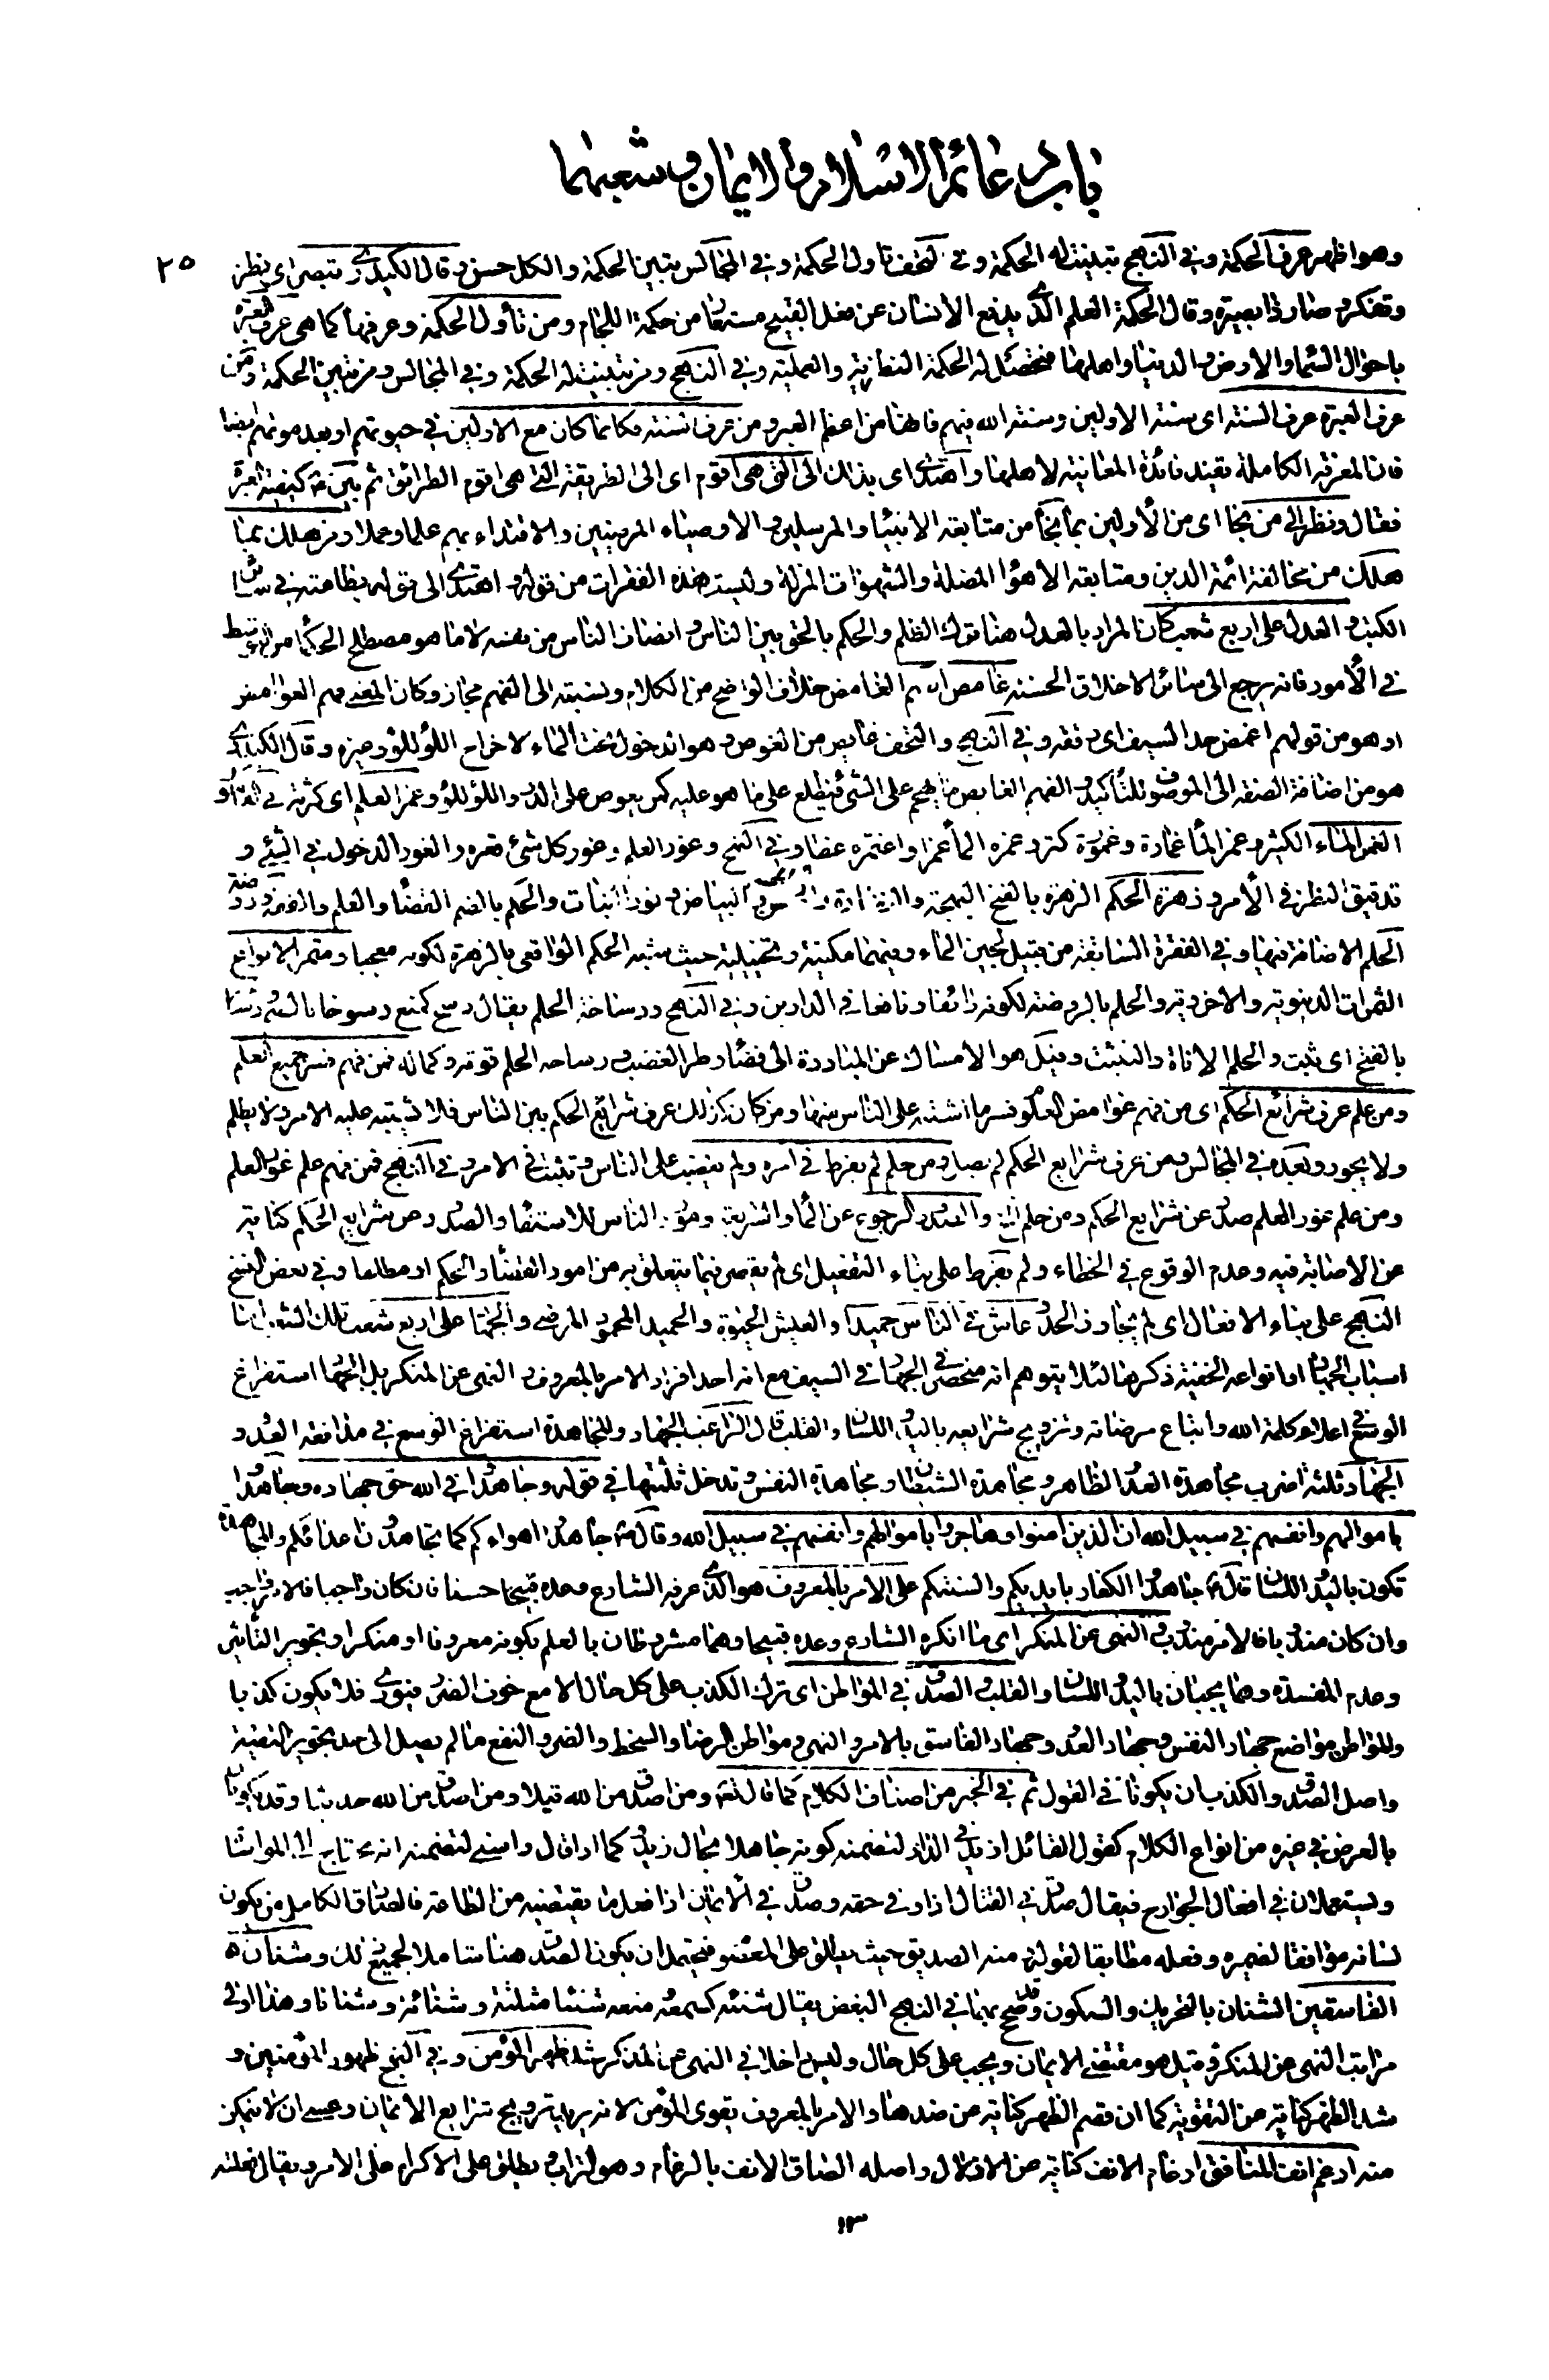 باب دعائم الاسلام والايمان وشعبهما
٢٥
وهو اظهر عرف الحكمة وفي النهج تبينت له الحكمة وفي التحف تاول الحكمة وفي المجالس يتبين الحكمة والكل حسن وقال الكيدري تبصر اى نظر
وتفكر وصار ذا بصيرة وقال الحكمة العلم الذى يدفع الانسان عن فعل القبيح مستعار من حكمة اللجام ومن تأول الحكمة وعرفها كما هى عرف العبرة
باحوال السماء والارض والدنيا واهلها فتحصل له الحكمة النظرية والعملية وفي النهج ومن تبينت له الحكمة وفي المجالس ومن تبين الحكمة ومن
عرف العبرة عرف السنة اى سنة الاولين وسنة الله فيهم فانها من اعظم العبر ومن عرف السنة فكانما كان مع الاولين في حيوتهم او بعد موتهم ايضا
فان المعرفة الكاملة تفيد فائدة المعاينة لاهلها واهتدى اى بذلك الى التى هى اقوم اى الى الطريقة التى هى اقوم الطرائق ثم بين كيفية العبرة
فقال ونظر الى من نجا اى من الأولين بما نجا من متابعة الانبياء والمرسلين والاوصياء المرضيين والاقتداء بهم علما وعملا ومن هلك بما
هلك من مخالفة ائمة الدين ومتابعة الاهواء المضلة والشهوات المزلة وليست هذه الفقرات من قوله واهتدى الى قوله بطاعته في سائر
الكتب والعدل على اربع شعب كان المراد بالعدل هنا ترك الظلم والحكم بالحق بين الناس وانصاف الناس من نفسه لا ما هو مصطلح الحكماء من التوسط
في الأمور فانه يرجع الى سائر الاخلاق الحسنة غامص الفهم الغامض خلاف الواضح من الكلام ونسبته الى الفهم مجاز وكان المعنى فهم الغوامض
او هو من قولهم اغمض حد السيف اى رققه وفي النهج والتحف غايص من الغوص وهو الدخول تحت الماء لاخراج اللؤلؤ وغيره وقال الكيدري
هو من اضافة الصفة الى الموصوف للتأكيد والفهم الغايص ما يهجم على الشئ فيطلع على ما هو عليه كمن يغوص على الدر واللؤلؤ وغمر العلم اى كثرته في القاموس
الغمر الماء الكثير وغمر الماء غمارة وغمورة كثر وغمره الماء غمرا واغتمره غطاه وفي النهج وغور العلم وغور كل شئ قعره والغور الدخول في الشئ و
تدقيق النظر في الأمر وزهرة الحكم الزهرة بالفتح البهجة والنضارة البياض ونور النبات والحكم بالضم القضاء والعلم والفقه وروضة
الحلم الاضافة فيها وفي الفقرة السابقة من قبيل لجين الماء وفيهما مكنية وتخييلية حيث شبه الحكم الواقعى بالزهرة لكونه معجبا ومثمرا لانواع
الثمرات الدنيوية والاخروية والحلم بالروضة لكونه رائقا ونافعا في الدارين وفي النهج ورساخة الحلم يقال رسخ كمنع رسوخا
بالفتح اى ثبت والحلم الاناة والتثبت وقيل هو الامساك عن المبادرة الى قضاء وطر الغضب ورساخة الحلم قوته وكماله فمن فهم فسر جميع العلم
ومن علم عرف شرائع الحكم اى من فهم غوامض العلوم فسر ما اشتبه على الناس منها ومن كان كذلك عرف شرائع الحكم بين الناس فلا يشتبه عليه الامر ولا يظلم
ولا يجور وبعده في المجالس ومن عرف شرايع الحكم لم يضل ومن حلم لم يفرط في امره ولم يغضب على الناس وتثبت في الامر وفي النهج فمن فهم علم غور العلم
ومن علم غور العلم صدر عن شرايع الحكم ومن حلم الخ والصدر الرجوع عن الماء والشريعة مورد الناس للاستقاء والصدر عن شرايع الحكم كناية
عن الاصابة فيه وعدم الوقوع في الخطاء ولم يفرط على بناء التفعيل اى لم يقصر فيما يتعلق به من امور القضاء والحكم او مطلقا وفي بعض نسخ
النهج على بناء الافعال اى لم يجاوز الحد وعاش في الناس حميدا والعيش الحيوة والحميد المحمود المرضى والجهاد على اربع شعب تلك الشعب اما
اسباب الجهاد او انواعه الخفية ذكرها لئلا يتوهم انه منحصر في الجهاد في السيف مع انه احد افراد الامر بالمعروف والنهى عن المنكر بل الجهاد استفراغ
الوسع في اعلاء كلمة الله واتباع مرضاته وترويج شرايعه باليد واللسان والقلب قال الراغب الجهاد والمجاهدة استفراغ الوسع في مدافعة العدو و
الجهاد ثلثة اضرب مجاهدة العدو الظاهر ومجاهدة الشيطان ومجاهدة النفس وتدخل ثلثتها في قوله وجاهدوا في الله حق جهاده وجاهدوا
باموالهم وانفسهم في سبيل الله ان الذين امنوا وهاجروا وجاهدوا باموالهم وانفسهم في سبيل الله وقال جاهدوا اهواءكم كما تجاهدون اعدائكم والمجاهدة
تكون باليد واللسان قال جاهدوا الكفار بايديكم والسنتكم على الامر بالمعروف هو الذى عرفه الشارع وعده حسنا فان كان واجبا فالامر واجب
وان كان مندوبا فالامر مندوب والنهى عن المنكر اى ما انكره الشارع وعده قبيحا وهما مشروطان بالعلم بكونه معروفا او منكرا وتجويز التأثير
وعدم المفسدة وهما يجبان باليد واللسان والقلب والصدق في المواطن اى ترك الكذب على كل حال الا مع خوف الضرر فيورى فلا يكون كذبا
والمواطن مواضع جهاد النفس وجهاد العدو وجهاد الفاسق بالامر والنهى ومواطن الرضا والسخط والضر والنفع ما لم يصل الى حد تجويز التقية
واصل الصدق والكذب ان يكونا في القول ثم في الخبر من اصناف الكلام كما قال تعالى ومن اصدق من الله قيلا ومن اصدق من الله حديثا وقد يكونان
بالعرض في غيره من انواع الكلام كقول القائل ازيد في الدار لتضمنه كونه جاهلا بحال زيد وكما اذا قال واسنى لتضمنه انه محتاج الى المواساة
ويستعملان في افعال الجوارح فيقال صدق في القتال اذا وفى حقه وصدق في الايمان اذا فعل ما يقتضيه من الطاعة فالصادق الكامل من يكون
لسانه موافقا لضميره وفعله مطابقا لقوله ومنه الصديق حيث يطلق على المعصوم فيحتمل ان يكون الصدق هنا شاملا لجميع ذلك وشنأن
الفاسقين الشنان بالتحريك والسكون وقد صحح بهما في النهج البغض يقال شنئه كسمعه ومنعه شنئا مثلثة وشنائة وشنانا وهذا اولى
مراتب النهى عن المنكر وقيل هو مقتضى الايمان ويجب على كل حال وليس داخلا في النهى عن المنكر شد ظهر المؤمن وفي النهج ظهور المؤمنين و
شد الظهر كناية عن التقوية كما ان قصم الظهر كناية عن ضدها والامر بالمعروف يقوى المؤمن لانه يريد ترويج شرايع الايمان وعسى ان لا يتمكن
منه ارغم انف المنافق ارغام الانف كناية عن الاذلال واصله الصاق الانف بالرغام وهو التراب ويطلق على الاكراه على الامر ويقال فعلته
١٣